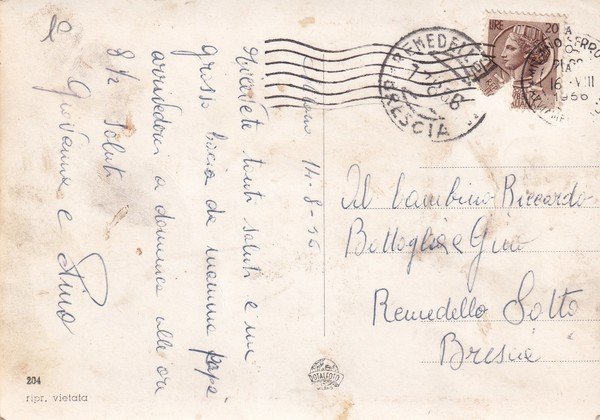 14-8-56
Ricevete tanti saluti e un
grosso bacio da mamma papà
arrivederci a domenica alle ore
8 1/2 Saluti
Giovanna e Pino
Al bambino Riccardo
Battaglia e Gino
Remedello Sotto
Brescia
LIRE 20
REMEDELLO
BRESCIA
16 VIII
1956
ROTALFOTO
204
ripr. vietata